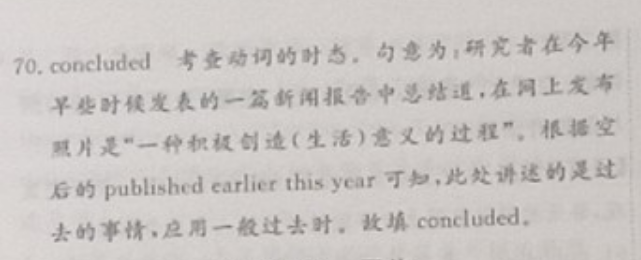 70. concluded 考查动词的时态。句意为:研究者在今年
早些时候发表的一篇新闻报告中总结道,在网上发布
照片是“一种积极创造(生活)意义的过程”。根据空
后的 published earlier this year 可知,此处讲述的是过
去的事情,应用一般过去时。故填 concluded。